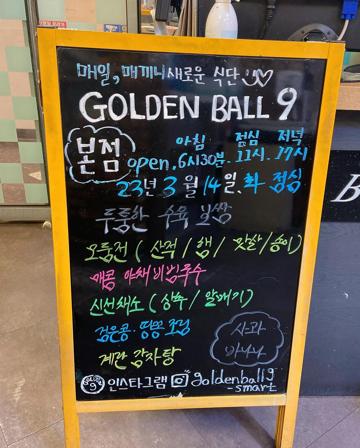 매일, 매끼니 새로운 식단
GOLDEN BALL 9
본점
아침 점심 저녁
open. 6시30분. 11시. 17시
23년 3월 14일. 화 점심
두툼한 수육 보쌈
모둠전 ( 산적 / 햄 / 맛살 / 송이)
매콤 야채비빔국수
신선채소 (상추 / 알배기)
검은콩·땅콩 조림
계란 감자탕
사과
바나나
인스타그램 goldenball9
-smart